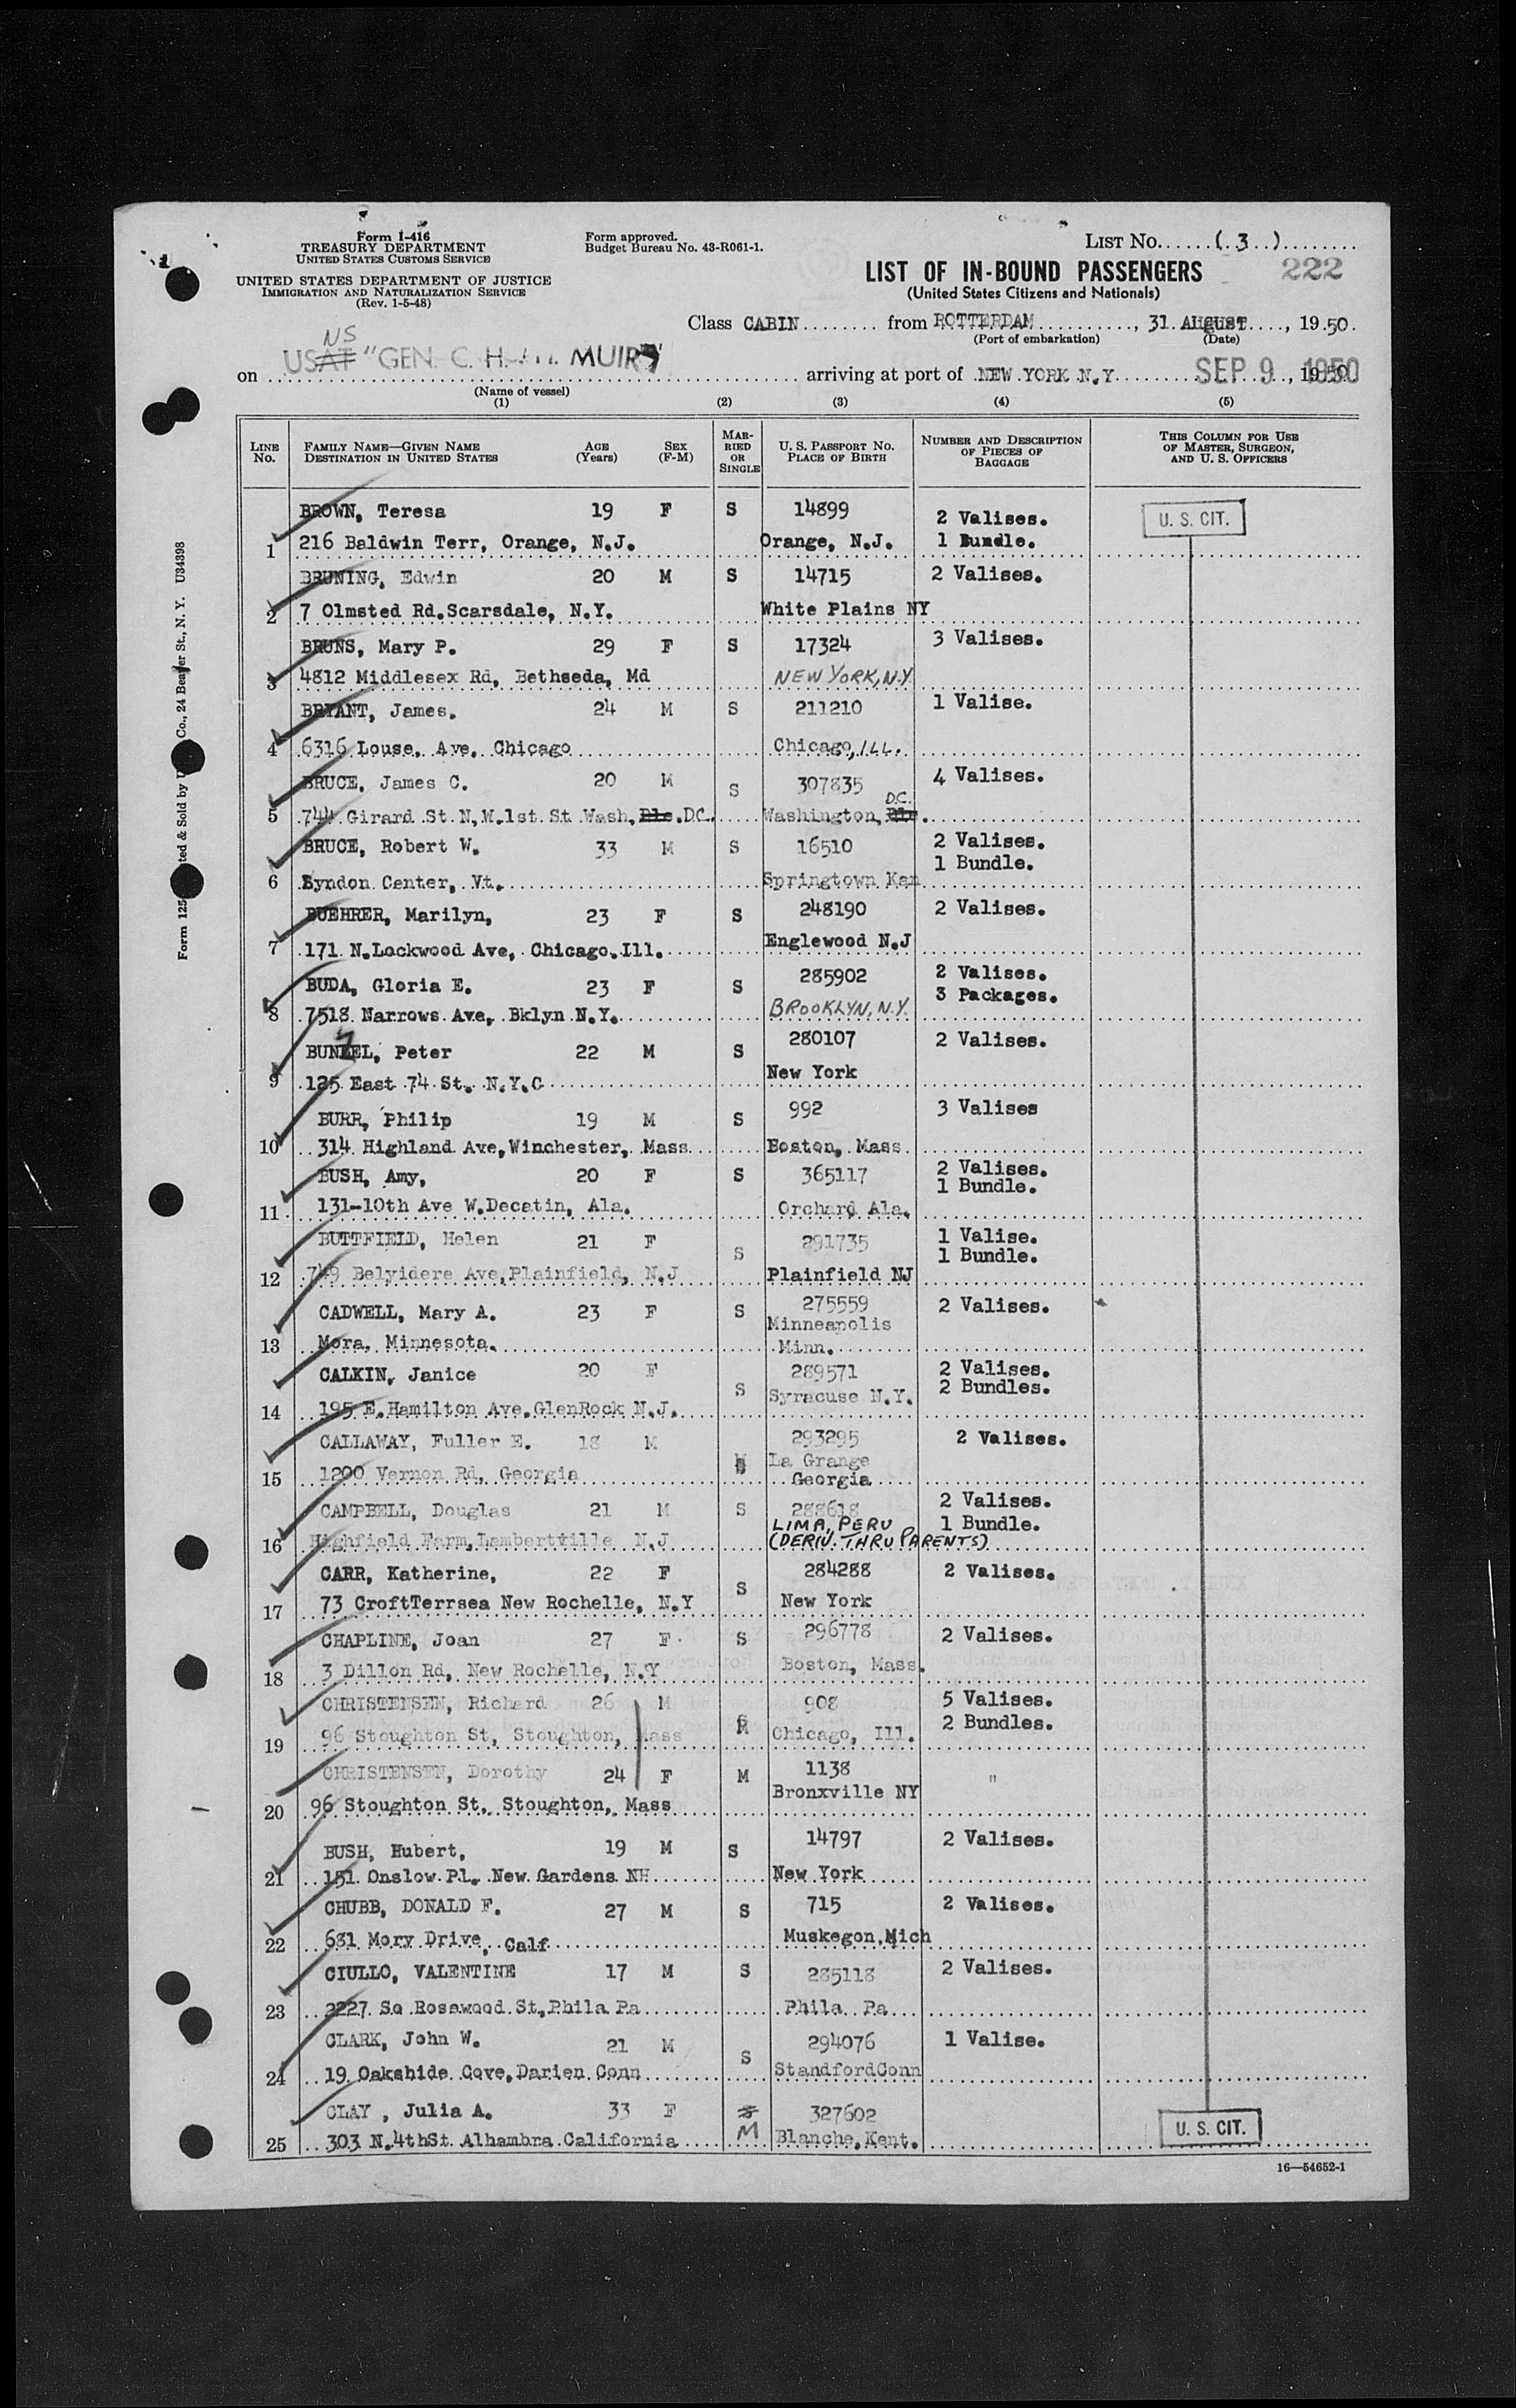 Form I-416
TREASURY DEPARTMENT
UNITED STATES CUSTOMS SERVICE
UNITED STATES DEPARTMENT OF JUSTICE
IMMIGRATION AND NATURALIZATION SERVICE
(Rev. 1-5-48)
Form approved.
Budget Bureau No. 43-R061-1.
LIST No. (3)
LIST OF IN-BOUND PASSENGERS 222
(United States Citizens and Nationals)
Class CABIN from ROTTERDAM, 31 AUGUST, 1950.
(Port of embarkation) (Date)
NS
on USAT "GEN. C. H. MUIR" arriving at port of NEW YORK N.Y. SEP 9 1950, 1950
(Name of vessel)
(1) (2) (3) (4) (5)
LINE No. FAMILY NAME—GIVEN NAME DESTINATION IN UNITED STATES AGE (Years) SEX (F-M) MARRIED OR SINGLE U. S. PASSPORT NO. PLACE OF BIRTH NUMBER AND DESCRIPTION OF PIECES OF BAGGAGE THIS COLUMN FOR USE OF MASTER, SURGEON, AND U. S. OFFICERS
BROWN, Teresa 19 F S 14899 2 Valises. U. S. CIT.
1 216 Baldwin Terr, Orange, N.J. Orange, N.J. 1 Bundle.
BRUNING, Edwin 20 M S 14715 2 Valises.
2 7 Olmsted Rd.Scarsdale, N.Y. White Plains NY
BRUNS, Mary P. 29 F S 17324 3 Valises.
3 4812 Middlesex Rd, Bethseda, Md NEW YORK, N.Y.
BRYANT, James. 24 M S 211210 1 Valise.
4 6316 Louse. Ave. Chicago Chicago, ILL.
BRUCE, James C. 20 M S 307835 4 Valises.
5 744 Girard St N.W.1st St Wash, Dlc. D.C. Washington, Dlc. D.C.
BRUCE, Robert W. 33 M S 16510 2 Valises.
1 Bundle.
6 Lyndon Center, Vt. Springtown Kan
BUEHRER, Marilyn, 23 F S 248190 2 Valises.
7 171 N.Lockwood Ave, Chicago.Ill. Englewood N.J
BUDA, Gloria E. 23 F S 285902 2 Valises.
3 Packages.
8 7518 Narrows Ave, Bklyn N.Y. BROOKLYN, N.Y.
BUNZEL, Peter 22 M S 280107 2 Valises.
9 125 East 74 St. N.Y.C New York
BURR, Philip 19 M S 992 3 Valises
10 314 Highland Ave,Winchester, Mass Boston, Mass
BUSH, Amy, 20 F S 365117 2 Valises.
1 Bundle.
11 131-10th Ave W.Decatin, Ala. Orchard Ala.
BUTTFIELD, Helen 21 F S 291735 1 Valise.
1 Bundle.
12 749 Belvidere Ave,Plainfield, N.J Plainfield NJ
CADWELL, Mary A. 23 F S 275559 2 Valises.
Minneapolis
13 Mora, Minnesota. Minn.
CALKIN, Janice 20 F S 289571 2 Valises.
2 Bundles.
14 195 E.Hamilton Ave.GlenRock N.J. Syracuse N.Y.
CALLAWAY, Fuller E. 18 M S 293295 2 Valises.
La Grange
15 1200 Vernon Rd, Georgia Georgia
CAMPBELL, Douglas 21 M S 288618 2 Valises.
LIMA, PERU 1 Bundle.
16 Highfield Farm,Lambertville N.J (DERIV. THRU PARENTS)
CARR, Katherine, 22 F S 284288 2 Valises.
17 73 CroftTerrsea New Rochelle, N.Y New York
CHAPLINE, Joan 27 F S 296778 2 Valises.
18 3 Dillon Rd, New Rochelle, N.Y Boston, Mass.
CHRISTENSEN, Richard 26 M M 908 5 Valises.
2 Bundles.
19 96 Stoughton St, Stoughton, Mass Chicago, Ill.
CHRISTENSEN, Dorothy 24 F M 1138 "
20 96 Stoughton St. Stoughton, Mass Bronxville NY
BUSH, Hubert, 19 M S 14797 2 Valises.
21 151 Onslow Pl. New Gardens NH New York
CHUBB, DONALD F. 27 M S 715 2 Valises.
22 681 Mory Drive, Calf Muskegon,Mich
CIULLO, VALENTINE 17 M S 285118 2 Valises.
23 2227 So Rosewood St,Phila Pa Phila Pa
CLARK, John W. 21 M S 294076 1 Valise.
24 19 Oakshide Cove,Darien Conn StandfordConn
CLAY , Julia A. 33 F S M 327602 U. S. CIT.
25 303 N.4thSt Alhambra California Blanche,Kent.
16—54652-1
Co., 24 Beaver St., N. Y. U34398